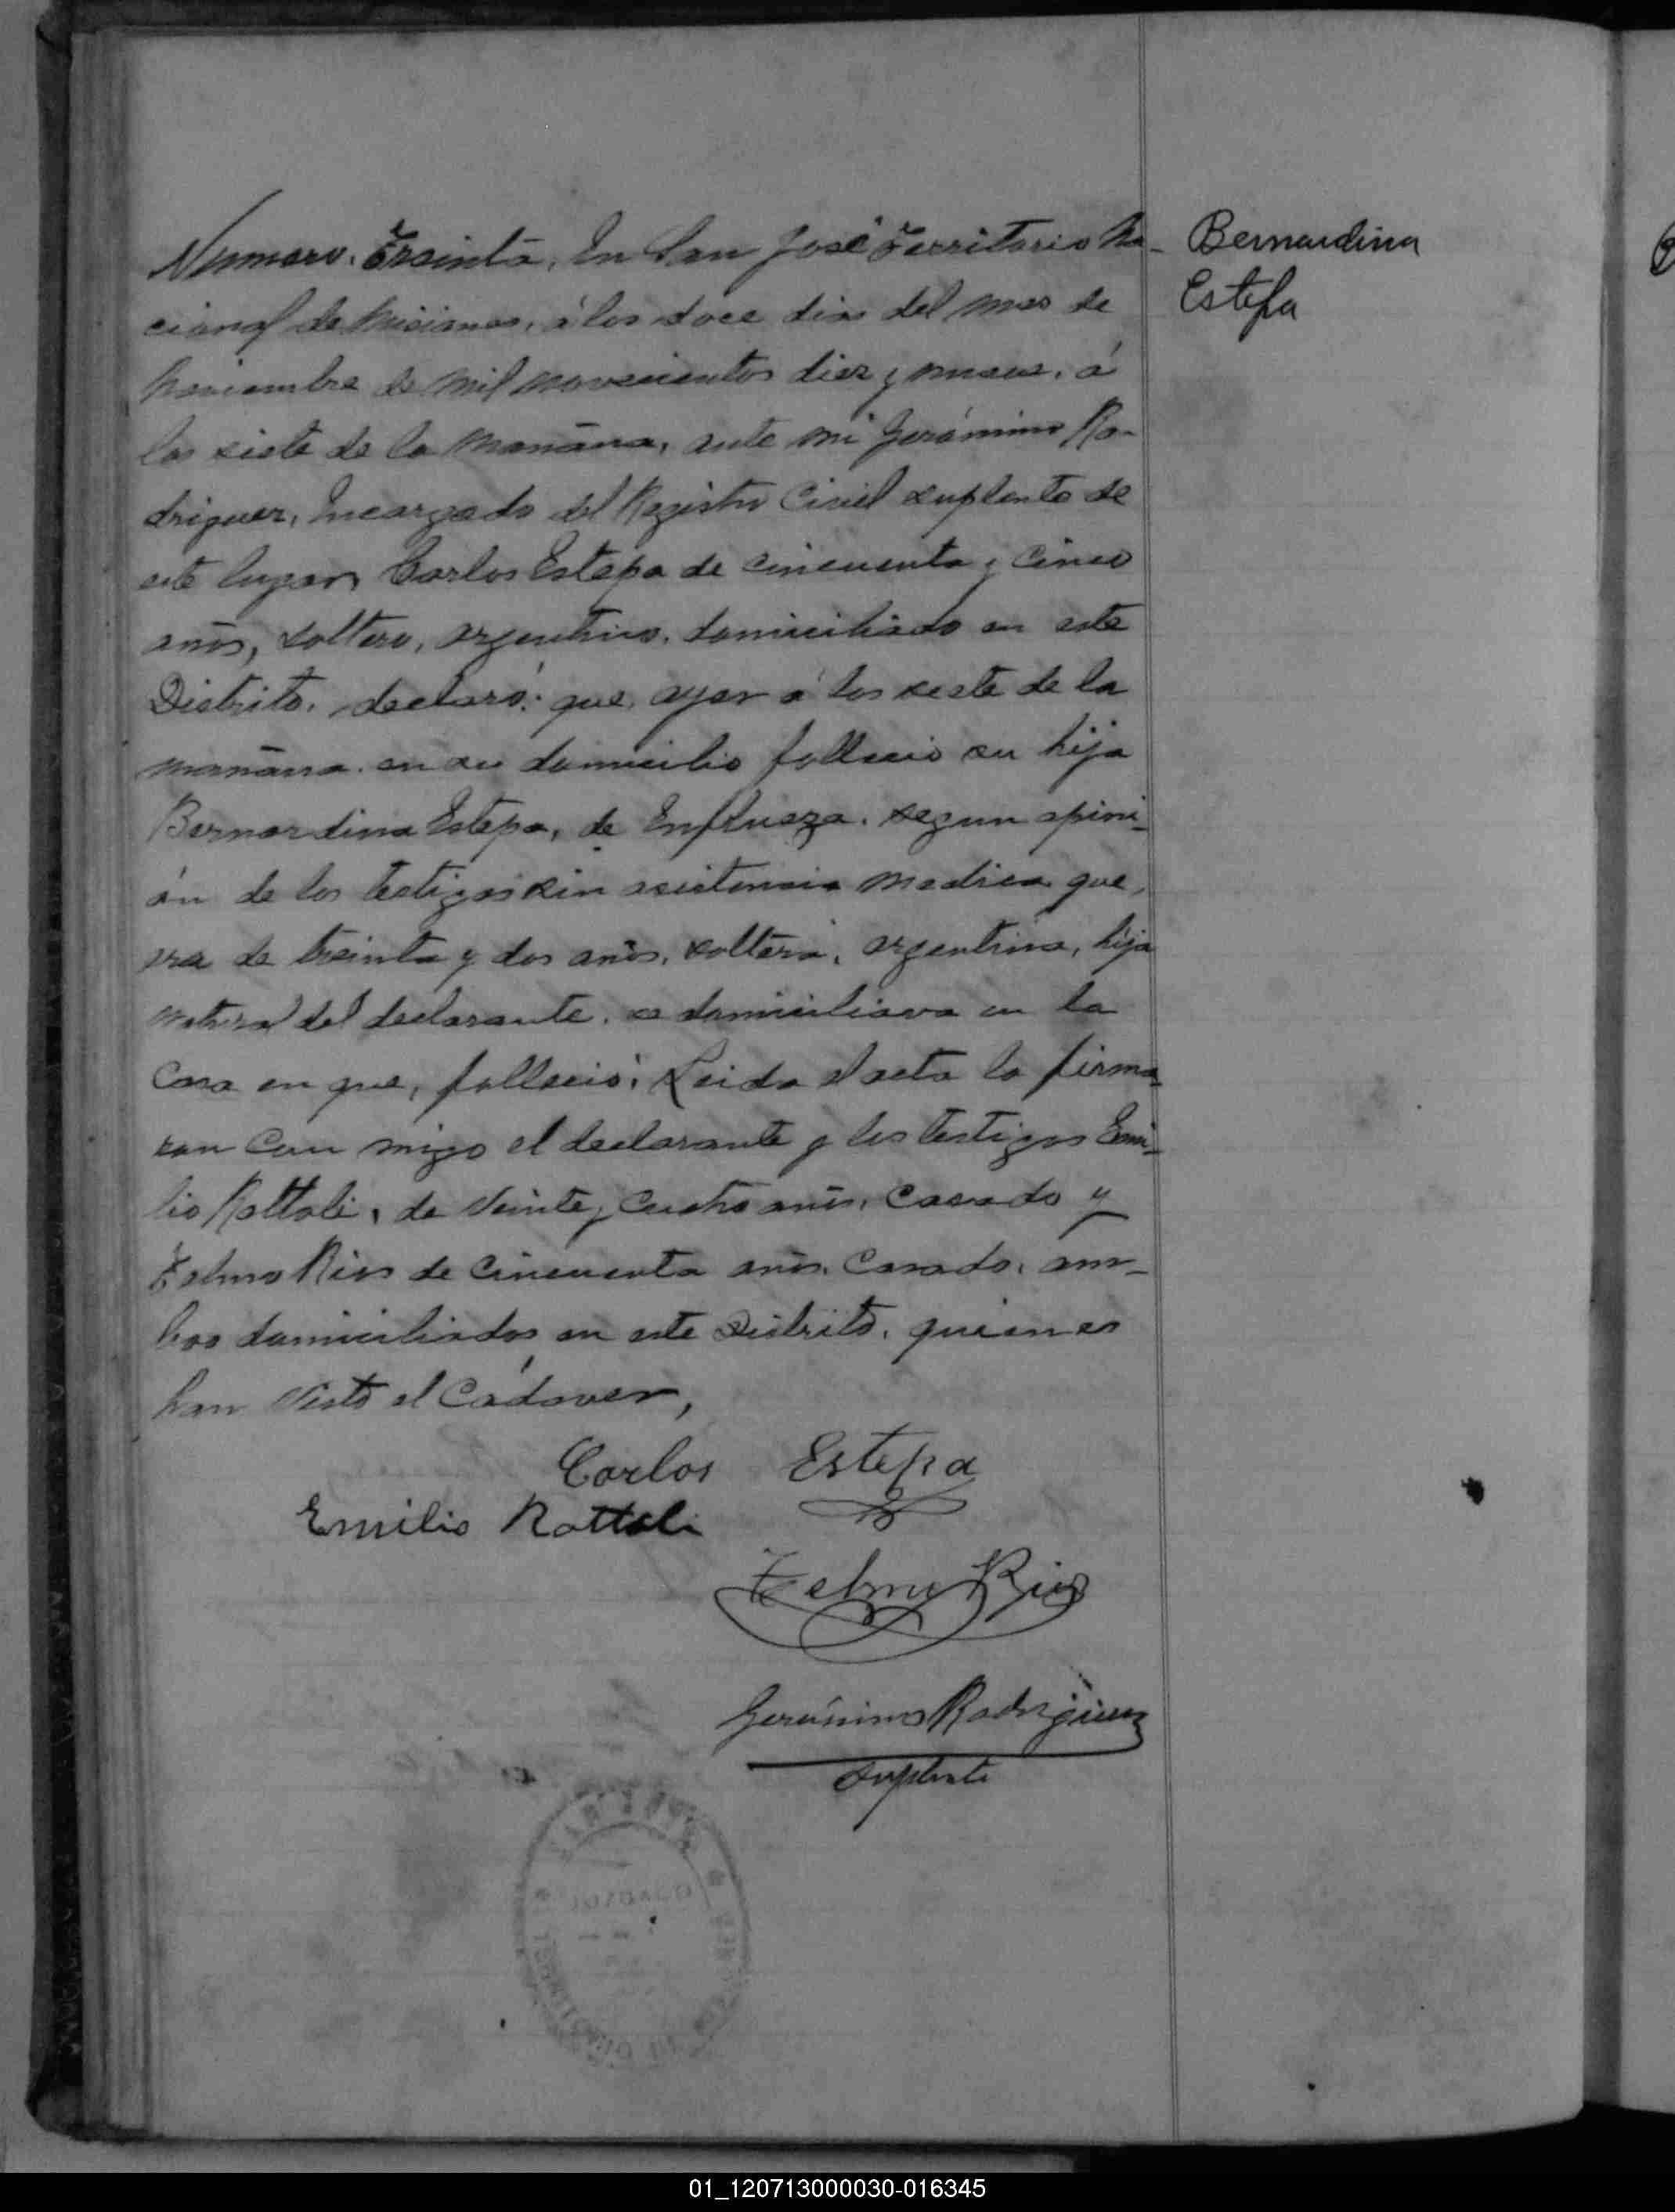 Numero. Treinta. En San José Territorio Na-
cional de Misiones, á los doce dias del mes de
Noviembre de mil novecientos diez y nueve, á
las siete de la mañana, ante mi Gerónimo Ro-
driguez, Encargado del Registro Civil suplente de
este lugar, Carlos Estepa de cincuenta y cinco
años, soltero, argentino, domiciliado en este
Distrito, declaró: que, ayer á las siete de la
mañana en su domicilio fallecio su hija
Bernardina Estepa, de Enflueza, segun opini-
ón de los testigos sin asistencia medica que,
era de treinta y dos años, soltera, argentina, hija
natural del declarante, se domiciliava en la
Casa en que, falleció: Leida el acta la firma-
ron con migo el declarante y los testigos Emi-
lio Rottoli, de Veinte y Cuatro años, Casado y
Telmo Rios de Cincuenta años, Casado, am-
bos domiciliados en este Distrito, quienes
han Visto el Cadáver,
Carlos Estepa
Emilio Rottoli
Telmo Rios
Gerónimo Rodriguez
Suplente
Bernardina
Estepa
01_120713000030-016345